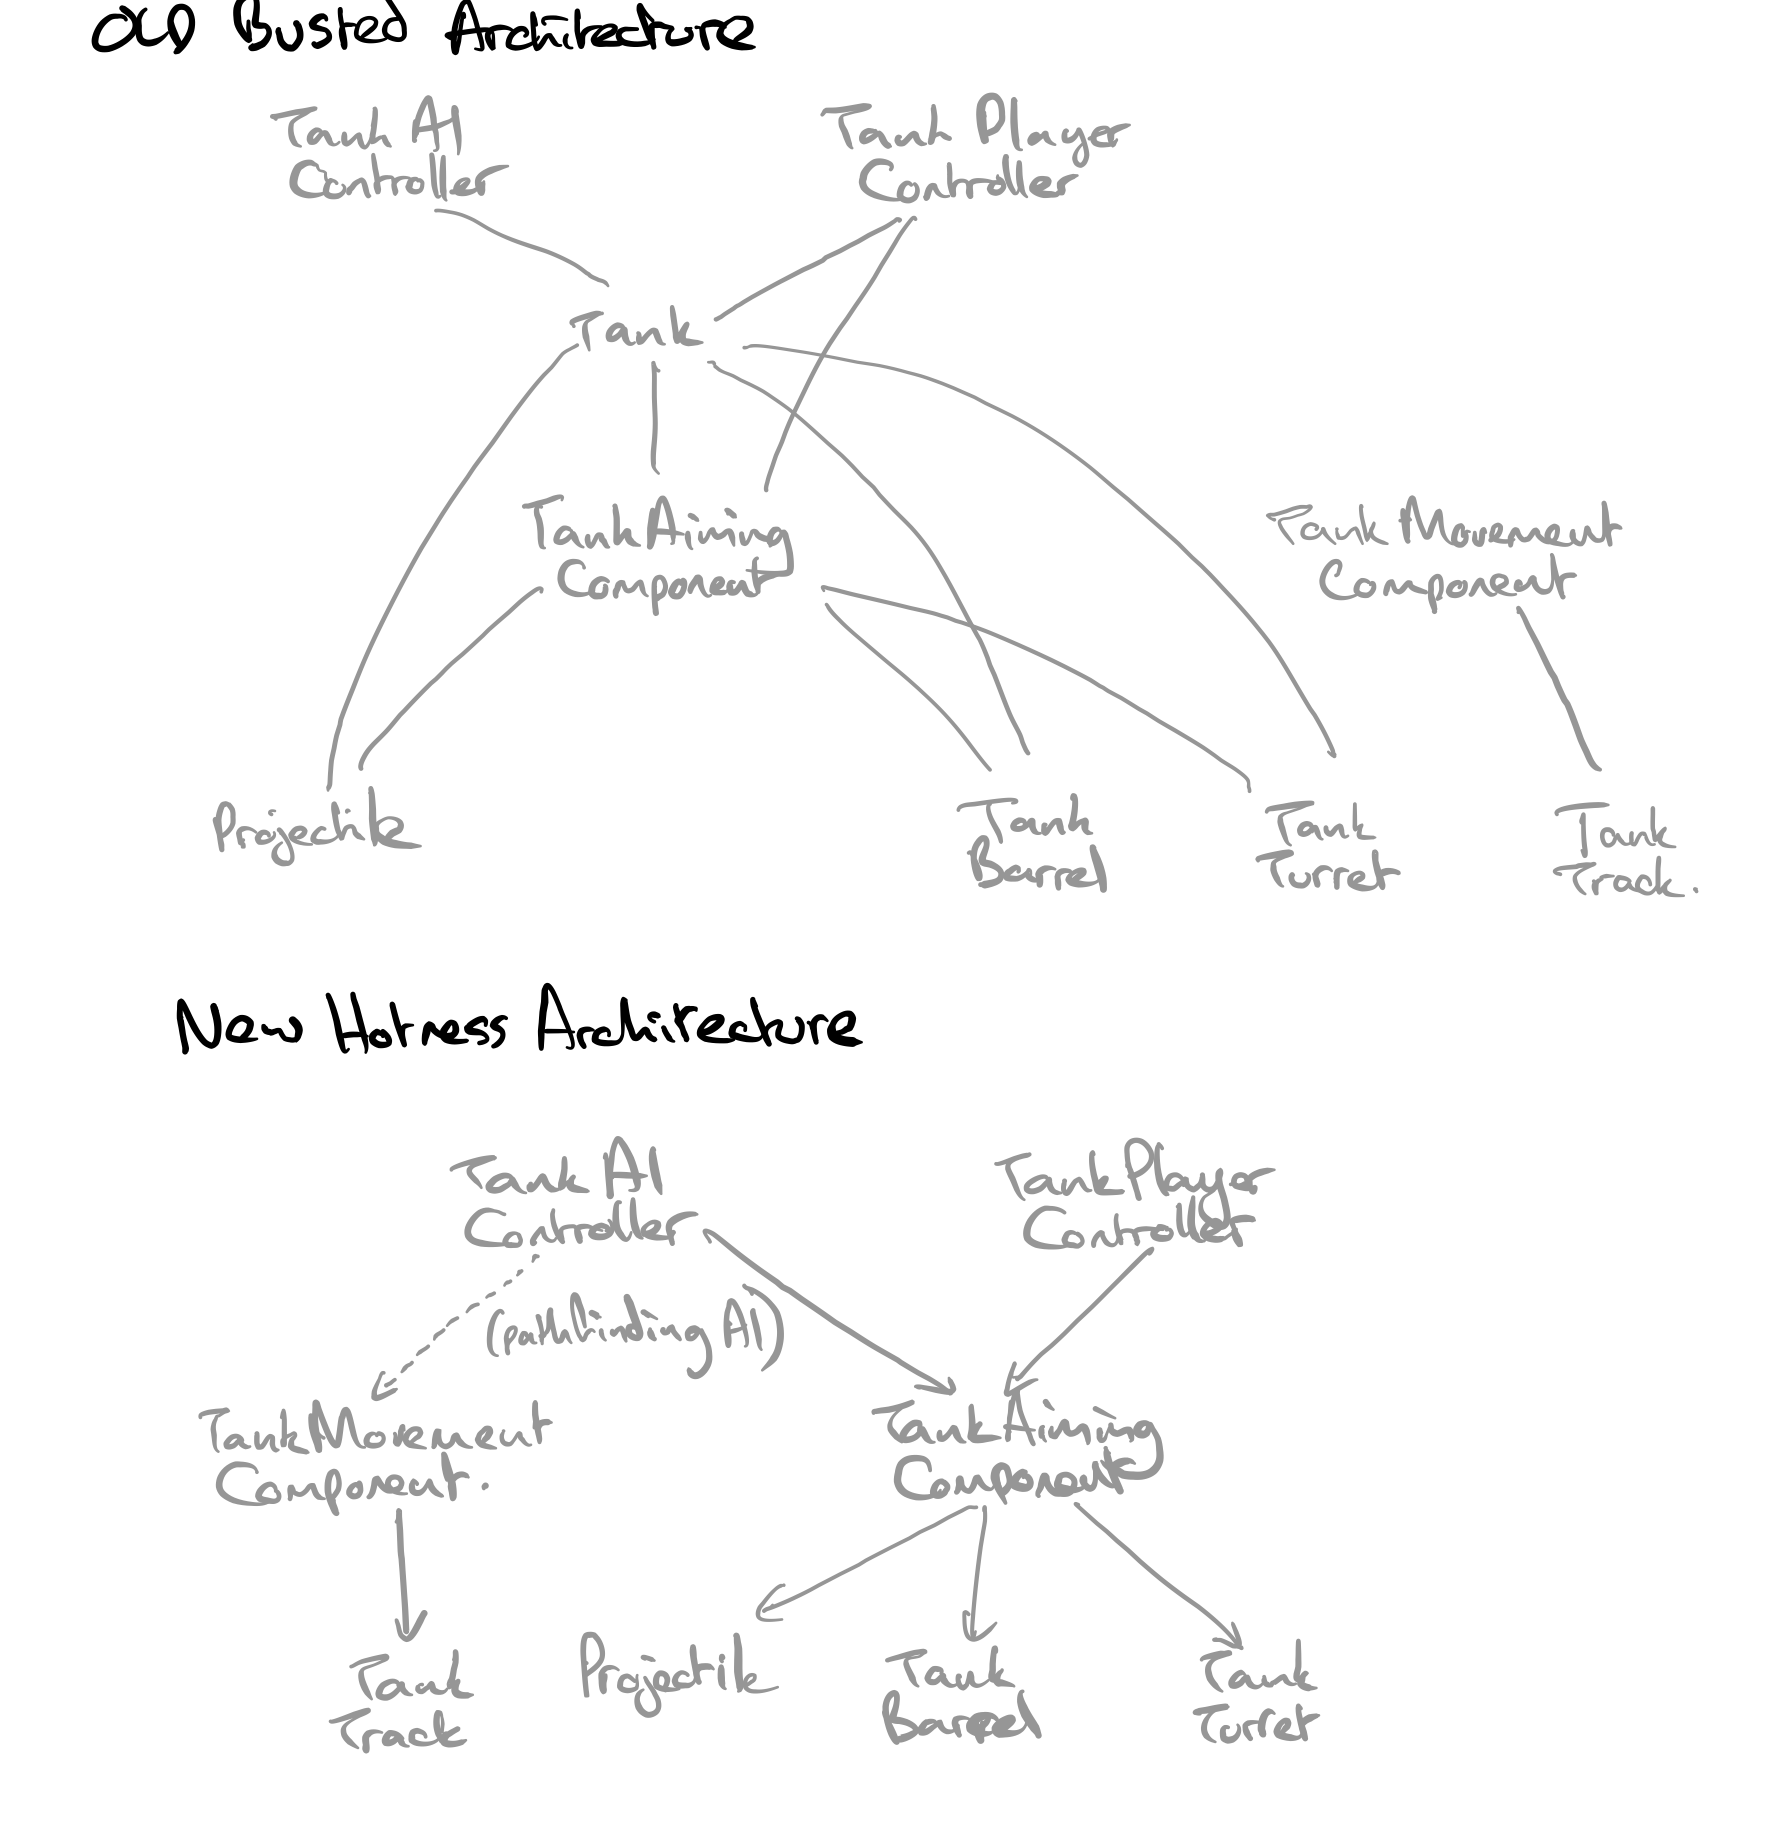 OLD Busted Architecture
Tank AI
Controller
Tank Player
Controller
Tank
Tank Aiming
Component
Tank Movement
Component
Projectile
Tank
Barrel
Tank
Turret
Tank
Track.
New Hotness Architecture
Tank AI
Controller
Tank Player
Controller
(pathfinding AI)
Tank Movement
Component.
Tank Aiming
Component
Tank
Track
Projectile
Tank
Barrel
Tank
Turret